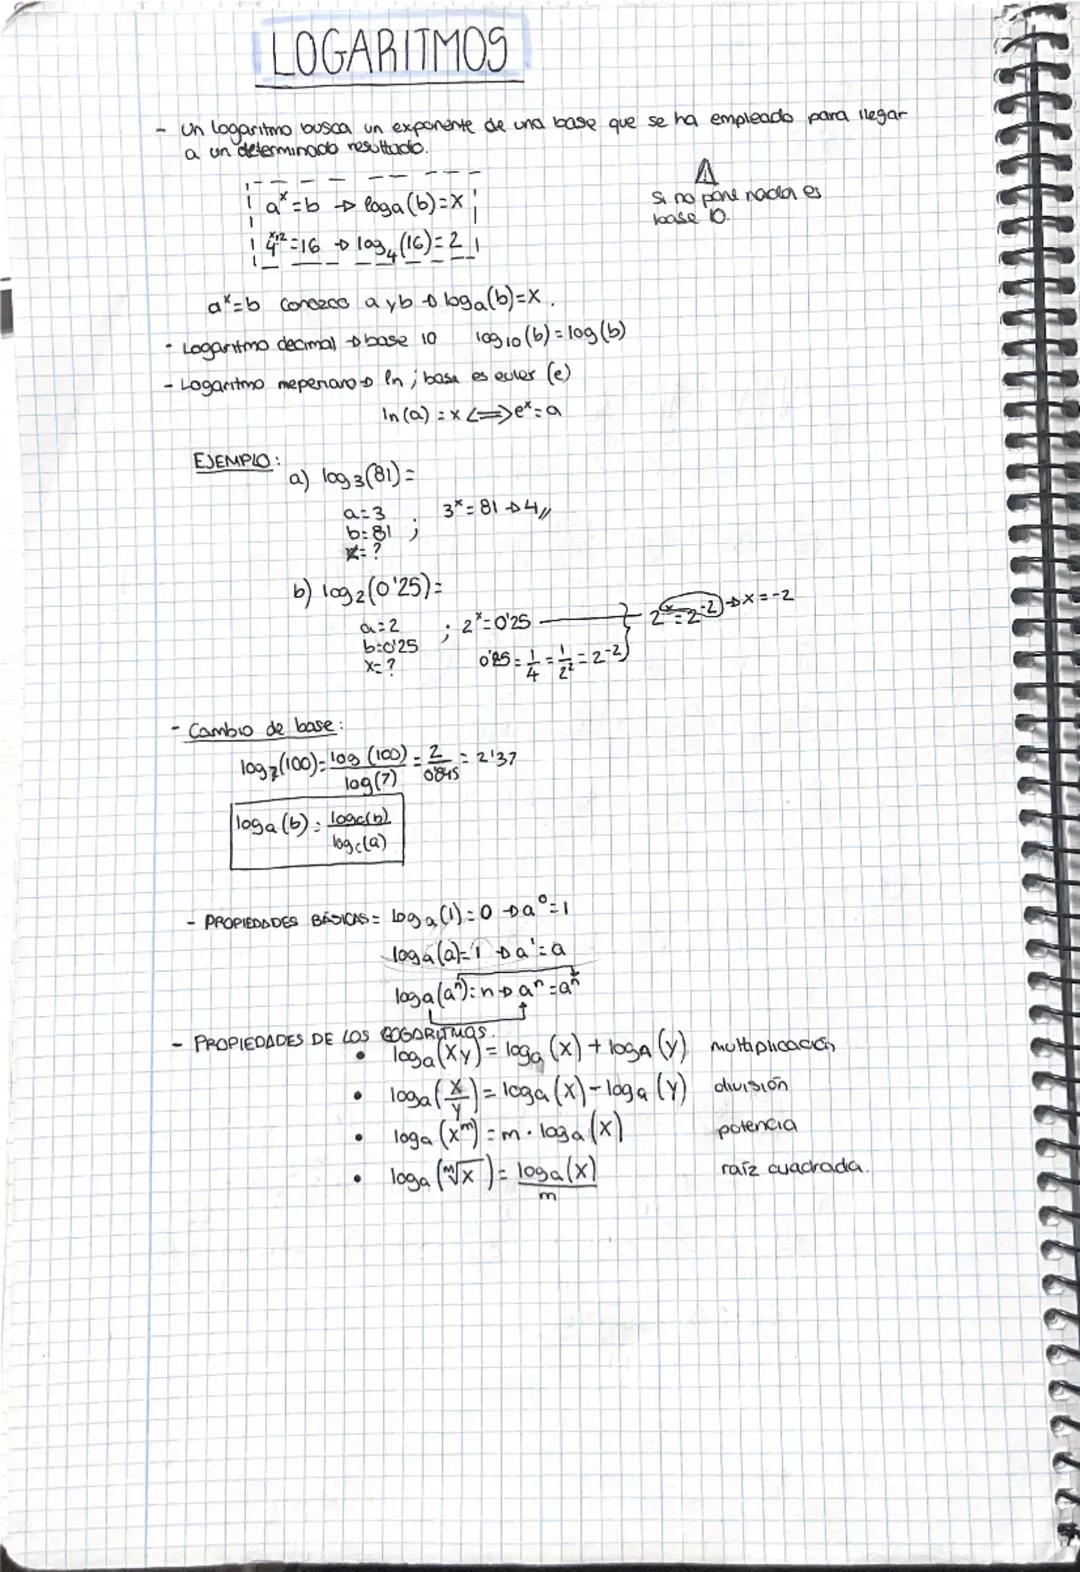 LOGARITMOS
- Un logaritmo busca un exponente de una base que se ha empleado para llegar
a un determinado resultado.
⚠
Si no pone nada es
base 10.
a^x=b → loga(b)=x
4^2=16 → log₄(16)=2
a^x=b conozco a y b → loga(b)=x.
· Logaritmo decimal → base 10 log₁₀(b)=log(b)
- Logaritmo neperiano → ln ; base es euler (e)
ln(a)=x <=> e^x=a
EJEMPLO:
a) log₃(81)=
a=3
b=81 ; 3^x=81 → 4//
x=?
b) log₂(0'25)=
a=2 ; 2^x=0'25 2^x=2^-2 → x=-2
b=0'25
x=? 0'25=1/4=1/2²=2^-2
- Cambio de base:
log₇(100)=log(100)/log(7)=2/0'845=2'37
loga(b)=logc(b)/logc(a)
- PROPIEDADES BÁSICAS= loga(1)=0 → a⁰=1
loga(a)=1 → a¹=a
loga(aⁿ)=n → aⁿ=aⁿ
- PROPIEDADES DE LOS LOGARITMOS.
• loga(xy)=loga(x)+loga(y) multiplicación
• loga(x/y)=loga(x)-loga(y) división
• loga(x^m)=m·loga(x) potencia
• loga(ᵐ√x)=loga(x)/m raíz cuadrada.